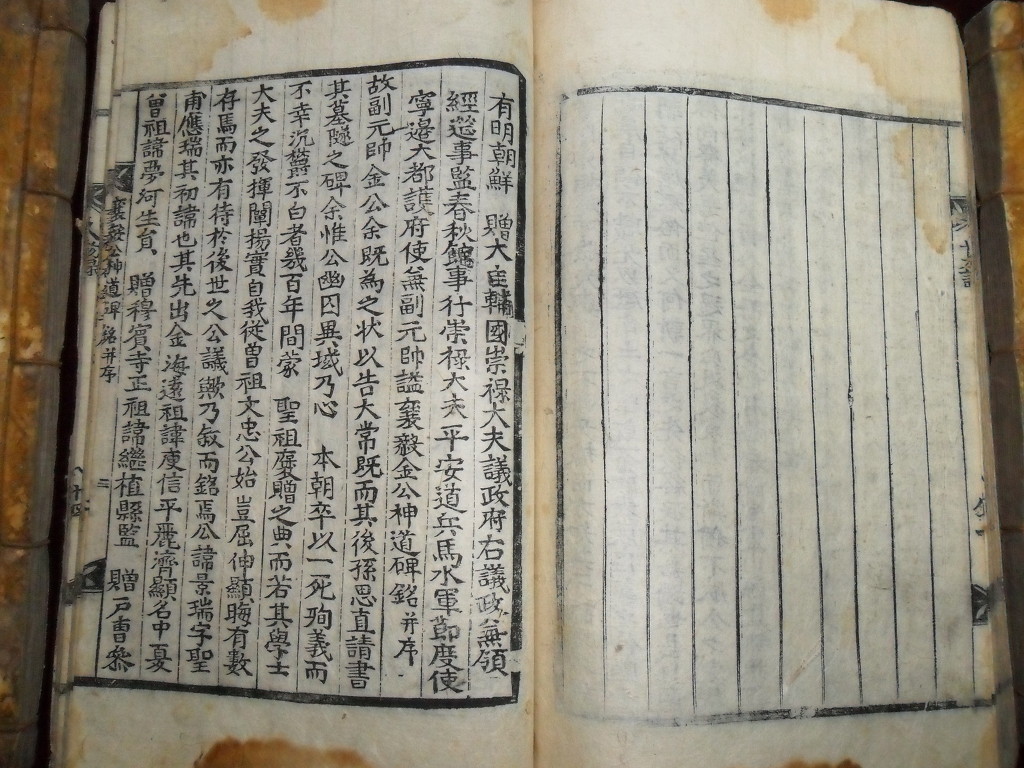 有明朝鮮 贈大匡輔國崇祿大夫議政府右議政兼領
經筵事監春秋館事行崇祿大夫平安道兵馬水軍節度使
寧邊大都護府使兼副元帥諡襄毅金公神道碑銘并序
故副元帥金公余既為之状以告大常既而其後孫思直請書
其墓隧之碑余惟公幽囚異域乃心 本朝卒以一死殉義而
不幸沉欝不白者幾百年間蒙 聖祖褒贈之典而若其學士
大夫之發揮闡揚實自我從曽祖文忠公始豈屈伸顯晦有數
存焉而亦有待於後世之公議歟乃敘而銘焉公諱景瑞字聖
甫應瑞其初諱也其先出金海遠祖諱虔信平麗濟顯名中夏
曽祖諱夢河生員 贈穆賓寺正祖諱繼植縣監 贈戶曹參
襄毅公神道碑 銘并序